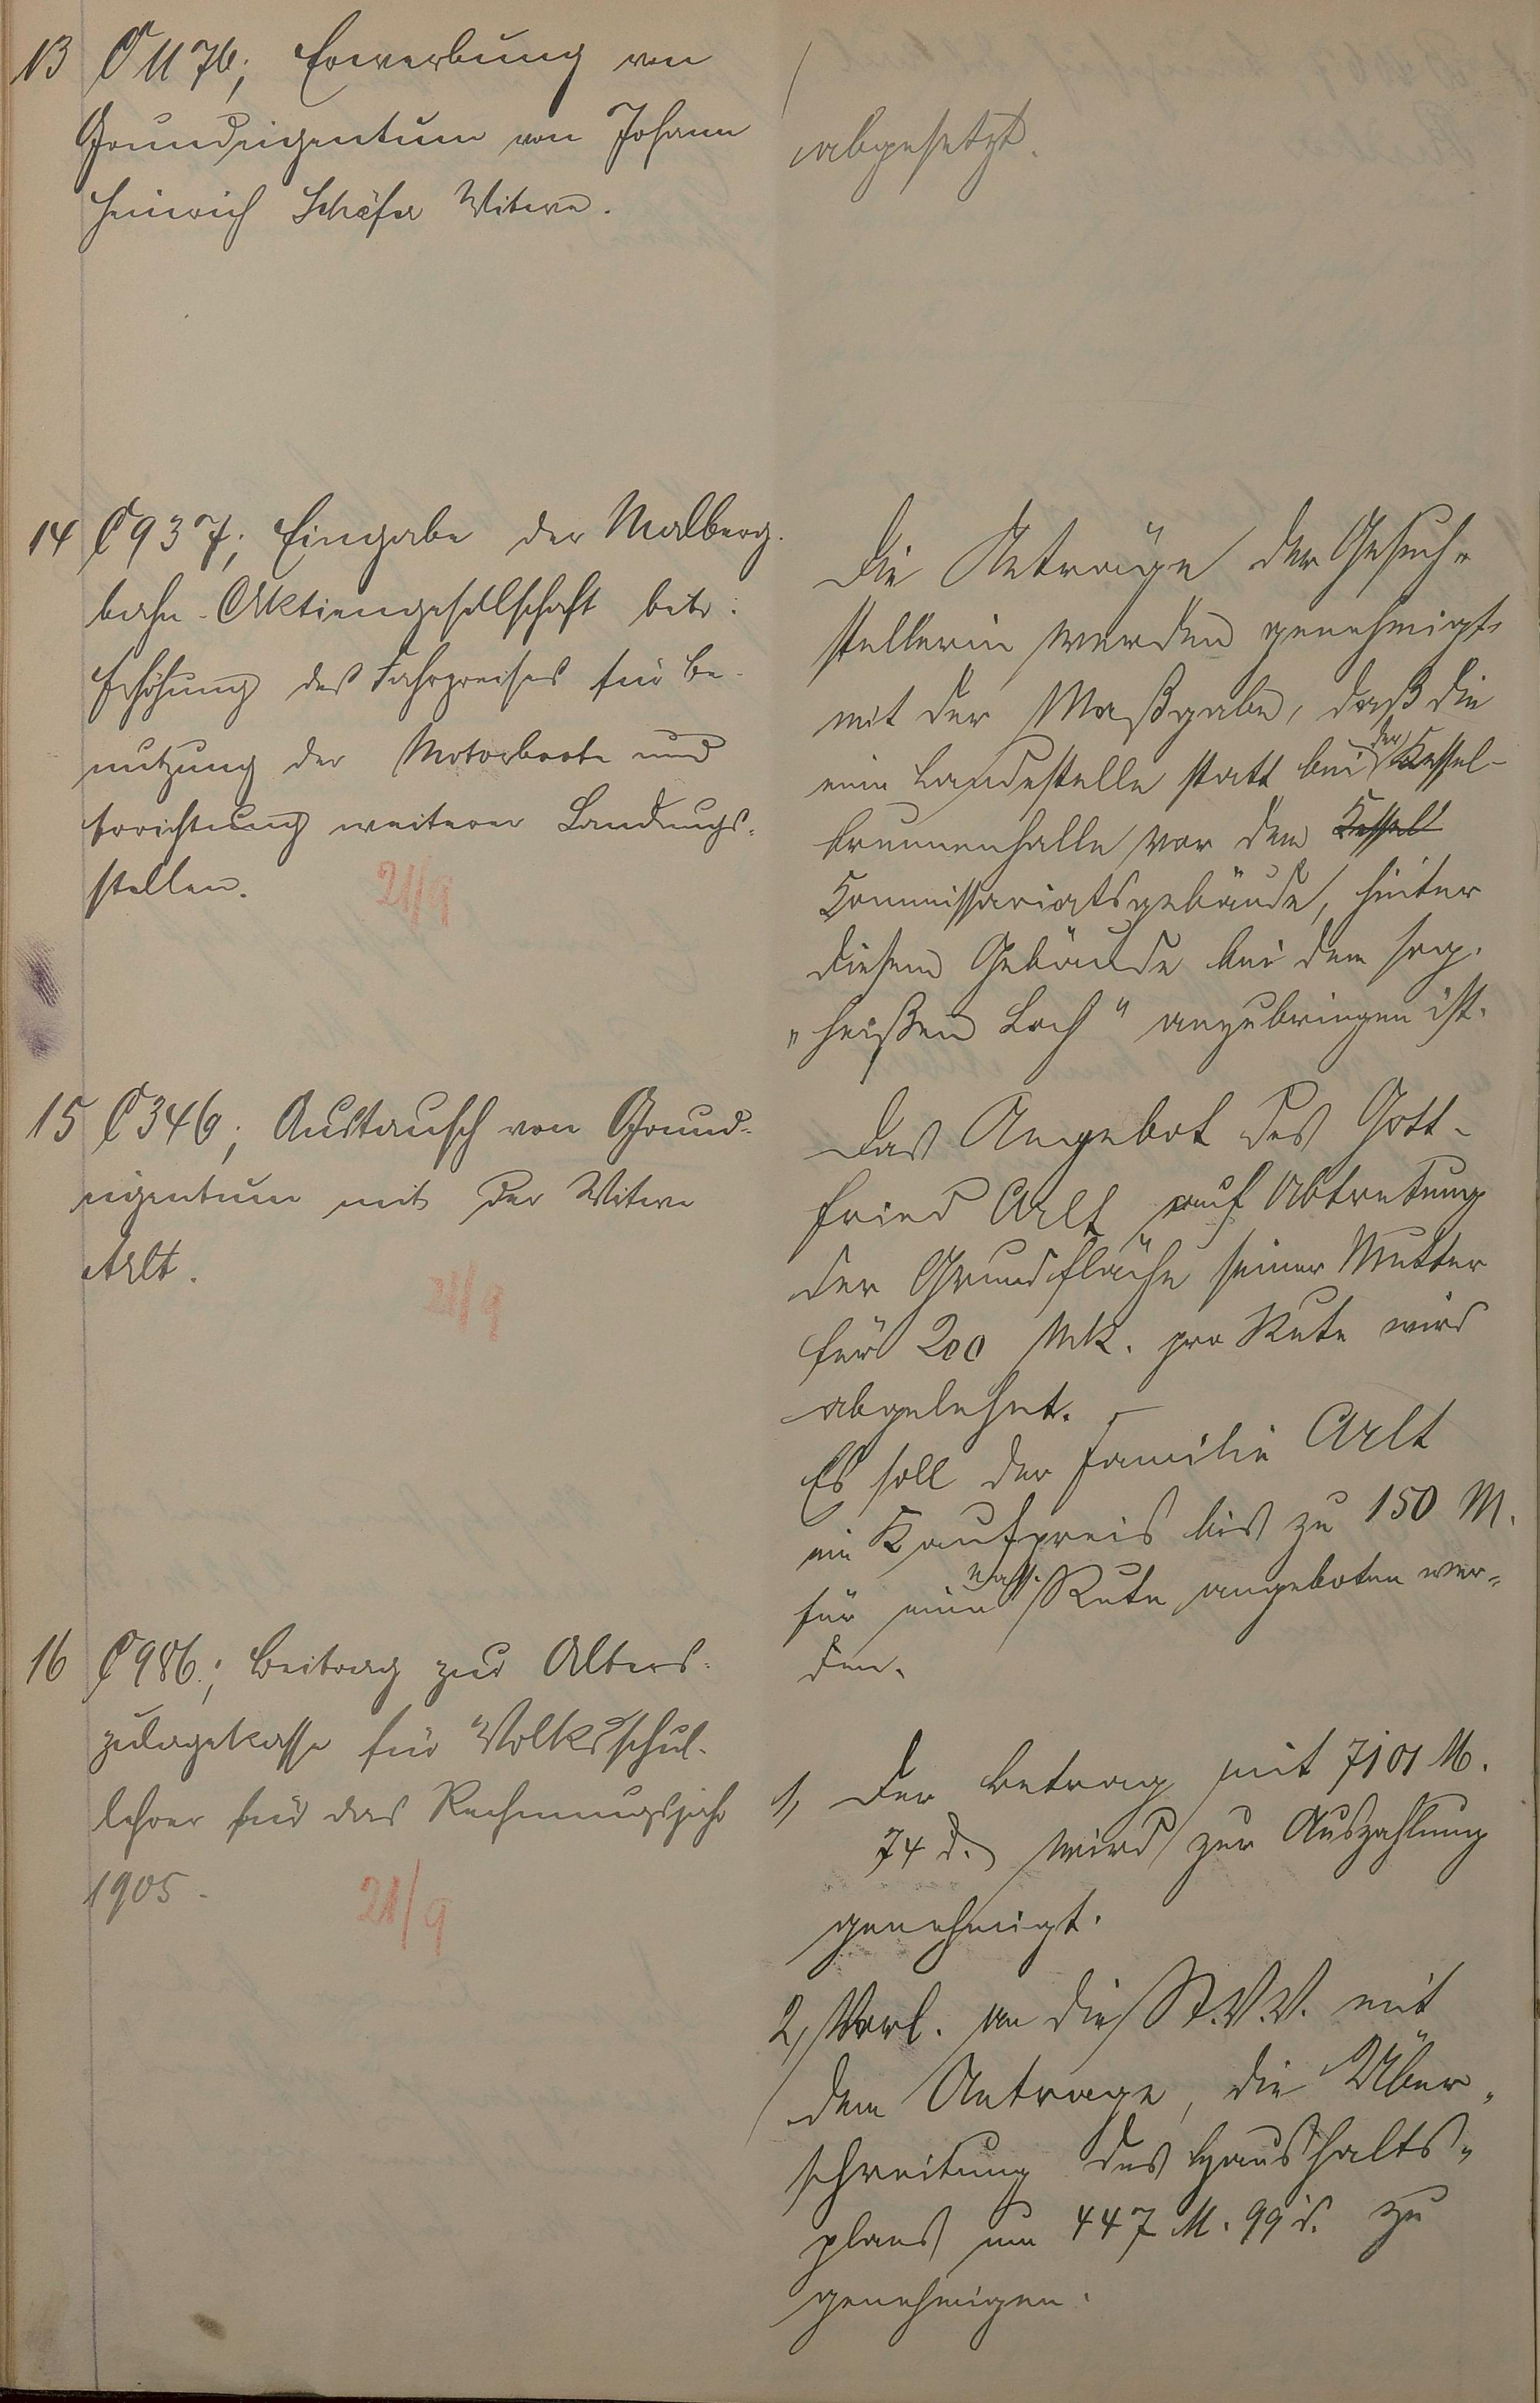 13 C 1176; Erwerbung von
Grundeigentum von Johann
Heinrich Schäfer Witwe.
abgesetzt.
14 C 937; Eingabe der Malberg-
bahn-Aktiengesellschaft betr:
Erhöhung des Fahrpreises für Be-
nutzung der Motorboote und
Errichtung weiterer Landungs-
stellen.
21/9
Die Anträge der Gesuch-
stellerin werden genehmigt
mit der Maßgabe, daß die
eine Landestelle statt bei der Kessel-
brunnenhalle vor dem Kessel
Kommissariatsgebäude, hinter
diesem Gebäude bei dem sog.
„heißen Loch" anzubringen ist.
15 C 346; Austausch von Grund-
eigentum mit der Witwe
Arlt.
21/9
Das Angebot des Gott-
fried Arlt auf Abtretung
der Grundfläche seiner Mutter
für 200 Mk. pro Rute wird
abgelehnt. –
Es soll der Familie Arlt
ein Kaufpreis bis zu 150 M.
für eine nass. Rute angeboten wer-
den.
16 C 986; Beitrag zur Alters-
zulagekasse für Volksschul-
lehrer für das Rechnungsjahr
1905.
21/9
1, Der Betrag mit 7101 M.
74 d. wird zur Auszahlung
genehmigt.
2, Vorl. an die St.V.V. mit
dem Antrage, die Über-
schreitung des Haushalts-
plans um 447 M. 99 d. zu
genehmigen.